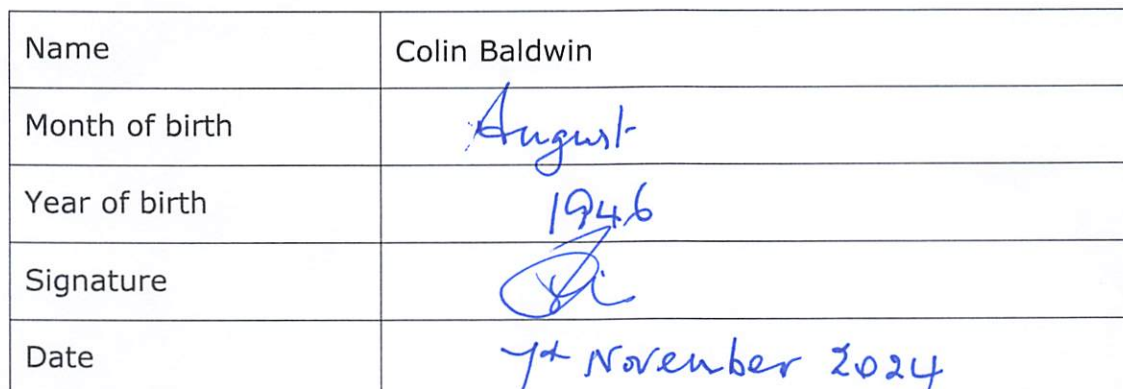 Name Colin Baldwin
Month of birth August
Year of birth 1946
Signature
Date 7th November 2024